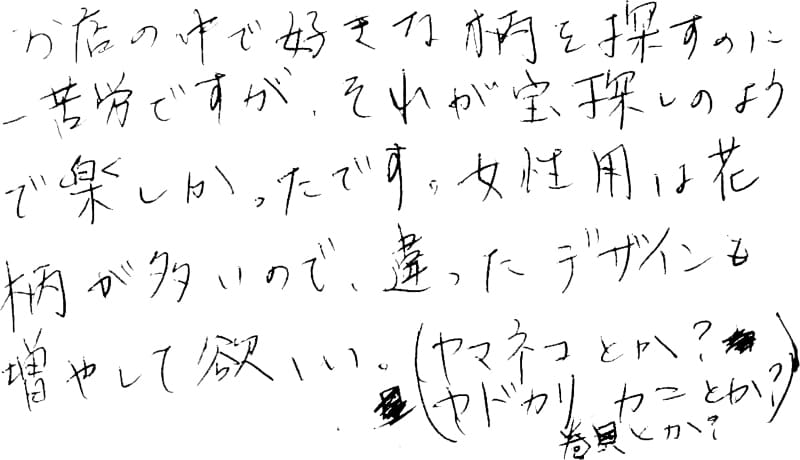 お店の中で好きな柄を探すのに
一苦労ですが、それが宝探しのよう
で楽しかったです。女性用は花
柄が多いので、違ったデザインも
増やして欲しい。(ヤマネコとか?
ヤドカリ カニとか?)
巻貝とか?